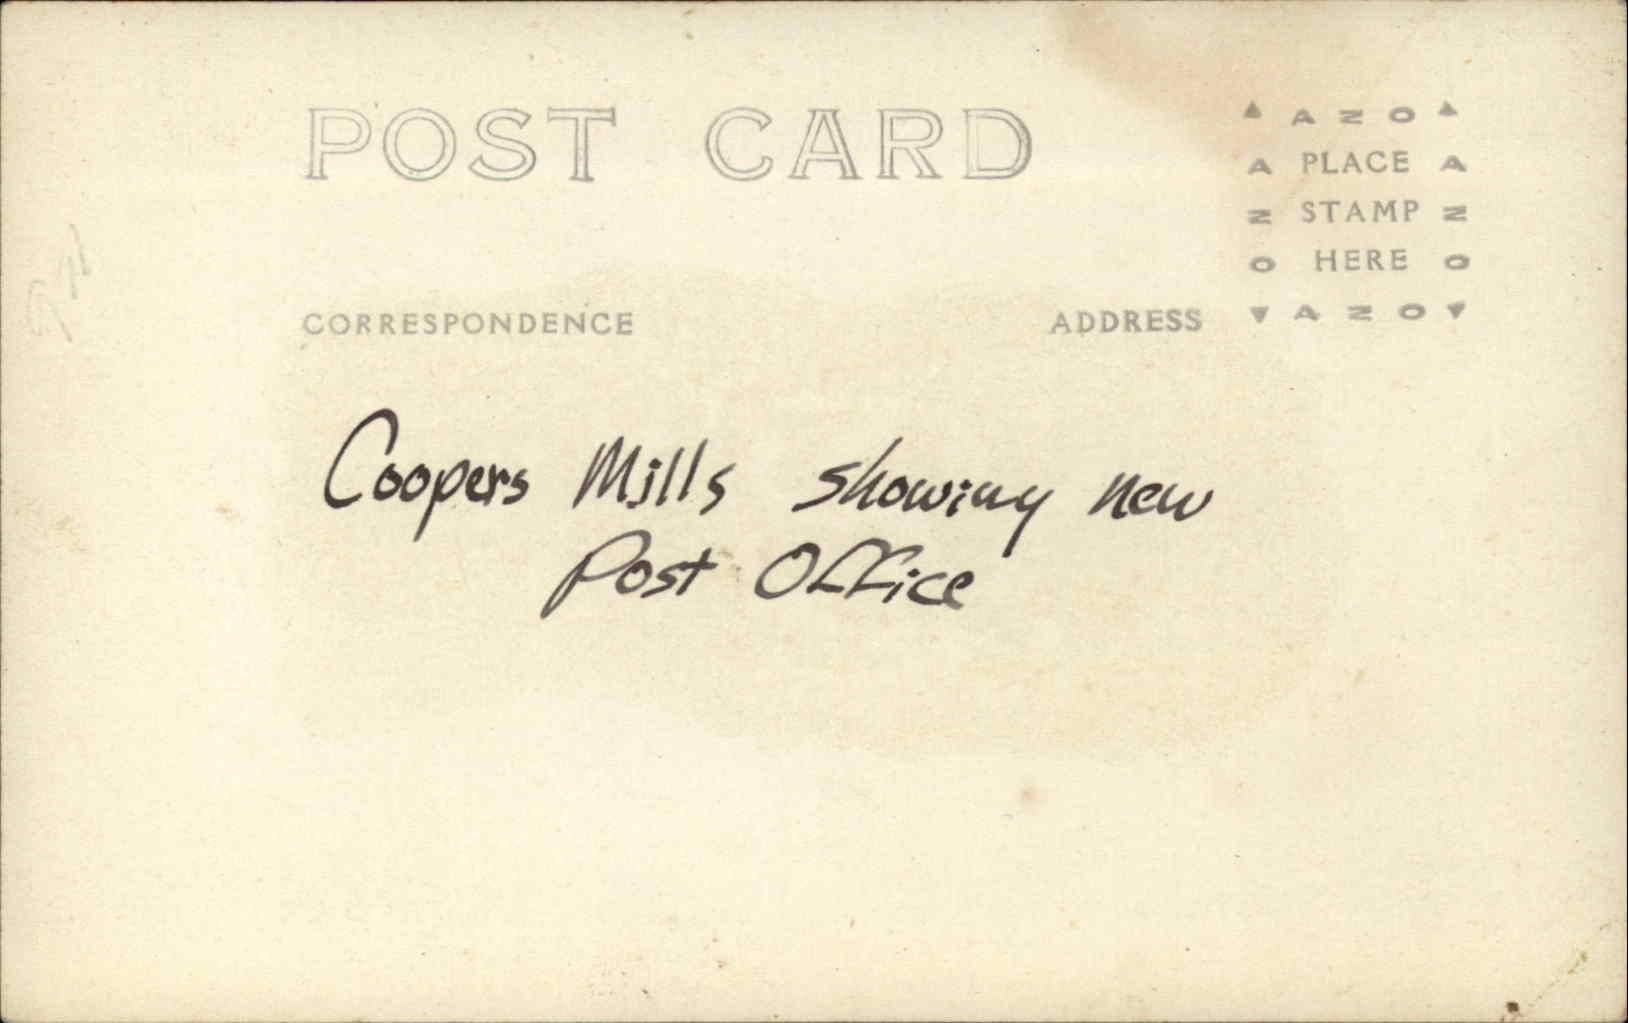 POST CARD
AZO
A PLACE A
Z STAMP Z
O HERE O
AZO
CORRESPONDENCE ADDRESS
Coopers Mills showing new
Post Office